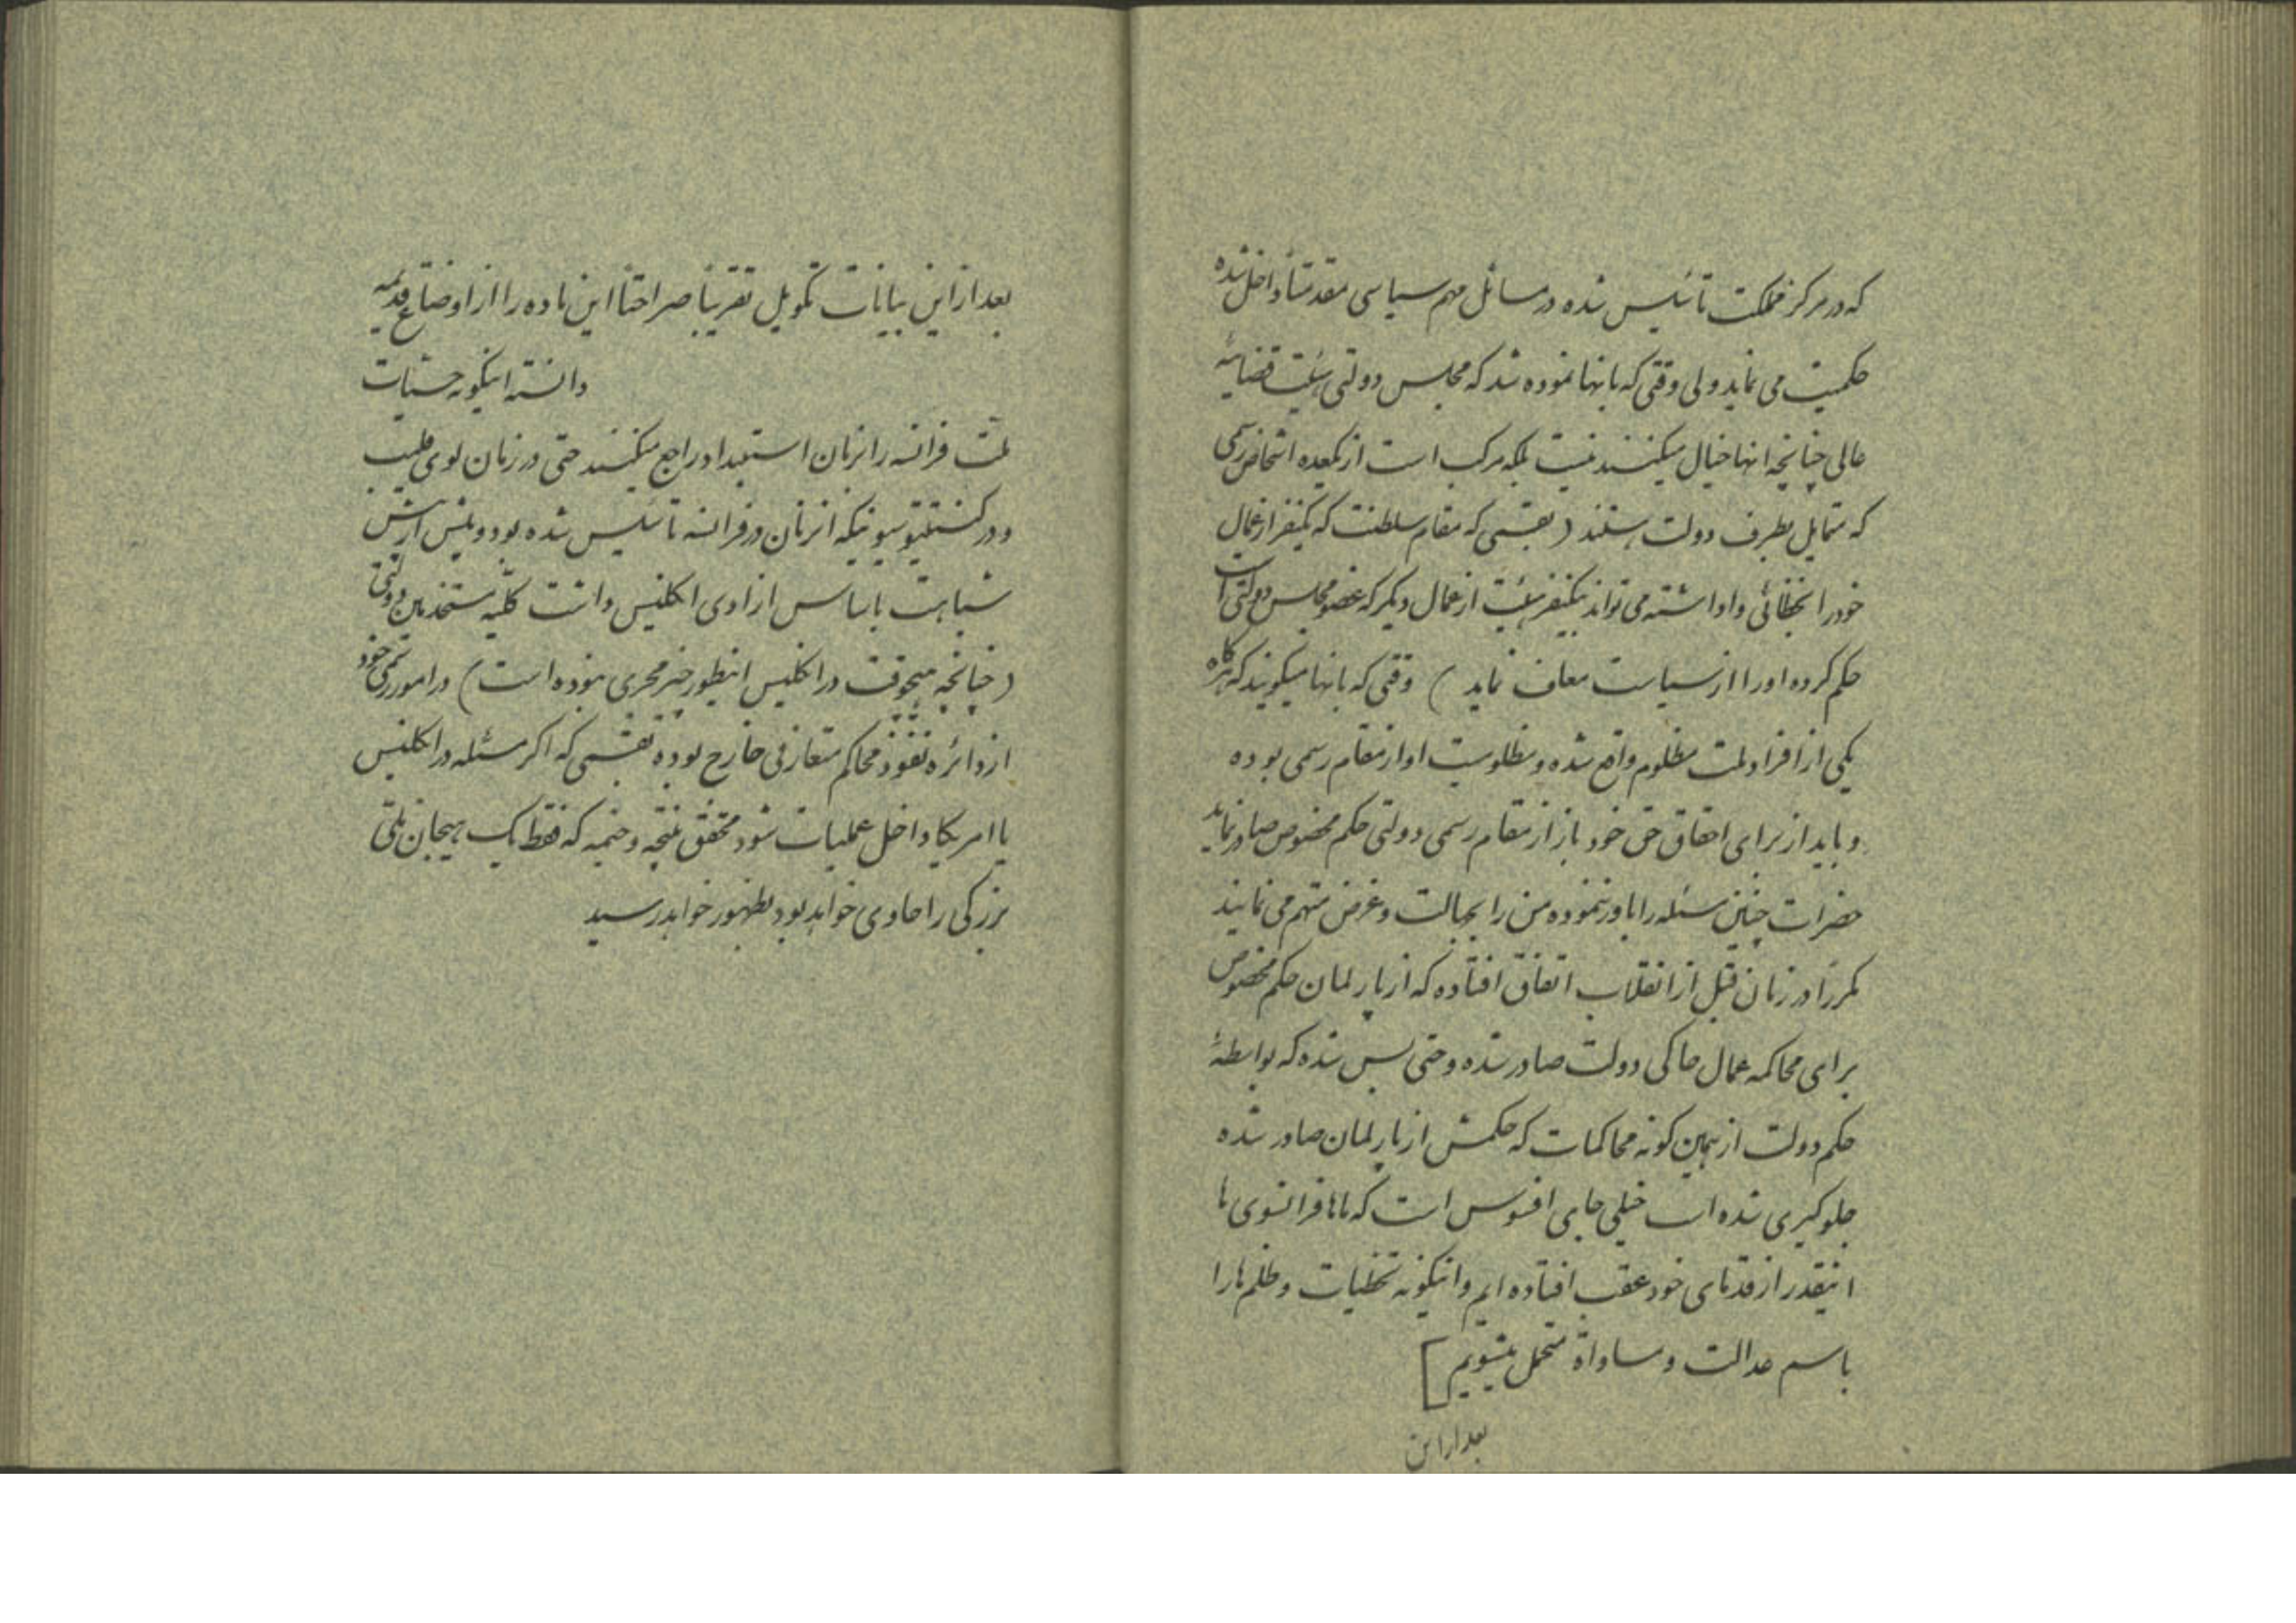 که در مرکز مملکت تأسیس شده در مسائل مهم سیاسی مقدمتاً داخل شده
حکمیت می نماید ولی وقتی که بانها نموده شد که مجلس دولتی هیئت قضائیه
عالی چنانچه انها خیال میکنند نیست بلکه مرکب است از یکعده اشخاص رسمی
که متمایل بطرف دولت هستند ( بقسمی که مقام سلطنت که یکنفر از عمال
خود را بخطائی واداشته می تواند یکنفر هیئت از عمال دیگر که عضو مجلس دولتی است
حکم کرده او را از سیاست معاف نماید ) وقتی که بانها میگویند که هرگاه
یکی از افراد ملت مظلوم واقع شده و مظلومیت او از مقام رسمی بوده
و باید از برای احقاق حق خود باز از مقام رسمی دولتی حکم مخصوص صادر نماید
حضرات چنین مسئله را باور ننموده من را بجهالت و غرض متهم می نمایند
مکرراً در زمان قبل از انقلاب اتفاق افتاده که از پارلمان حکم مخصوص
برای محاکمه عمال حاکی دولت صادر شده و حتی بس شده که بواسطهٔ
حکم دولت از همین گونه محاکمات که حکمش از پارلمان صادر شده
جلوگیری شده است خیلی جای افسوس است که ماها فرانسوی ها
اینقدر از قدمای خود عقب افتاده ایم و اینگونه تخطیات و ظلم ها را
باسم عدالت و مساواة متحمل میشویم ]
بعد از این
بعد از این بیانات تکویل تقریباً صراحتاً این ماده را از اوضاع قدیمه
دانسته اینگونه حسیات
ملت فرانسه را بزمان استبداد راجع میکنند حتی در زمان لوی فلیپ
و در کنستیتوسیونیکه انزمان در فرانسه تأسیس شده بود و بلنس ارمش
شباهت باساس ازادی انگلیس داشت کلیه مستخدمین دولتی
( چنانچه هیچوقت در انگلیس اینطور چیز مجری نبوده است ) در امور رسمی خود
از دائره نفوذ محاکم متعارفی خارج بوده بقسمی که اگر مسئله در انگلیس
یا امریکا داخل عملیات شود محقق نتیجه وخیمه که فقط یک هیجان ملتی
بزرگی را حاوی خواهد بود بظهور خواهد رسید